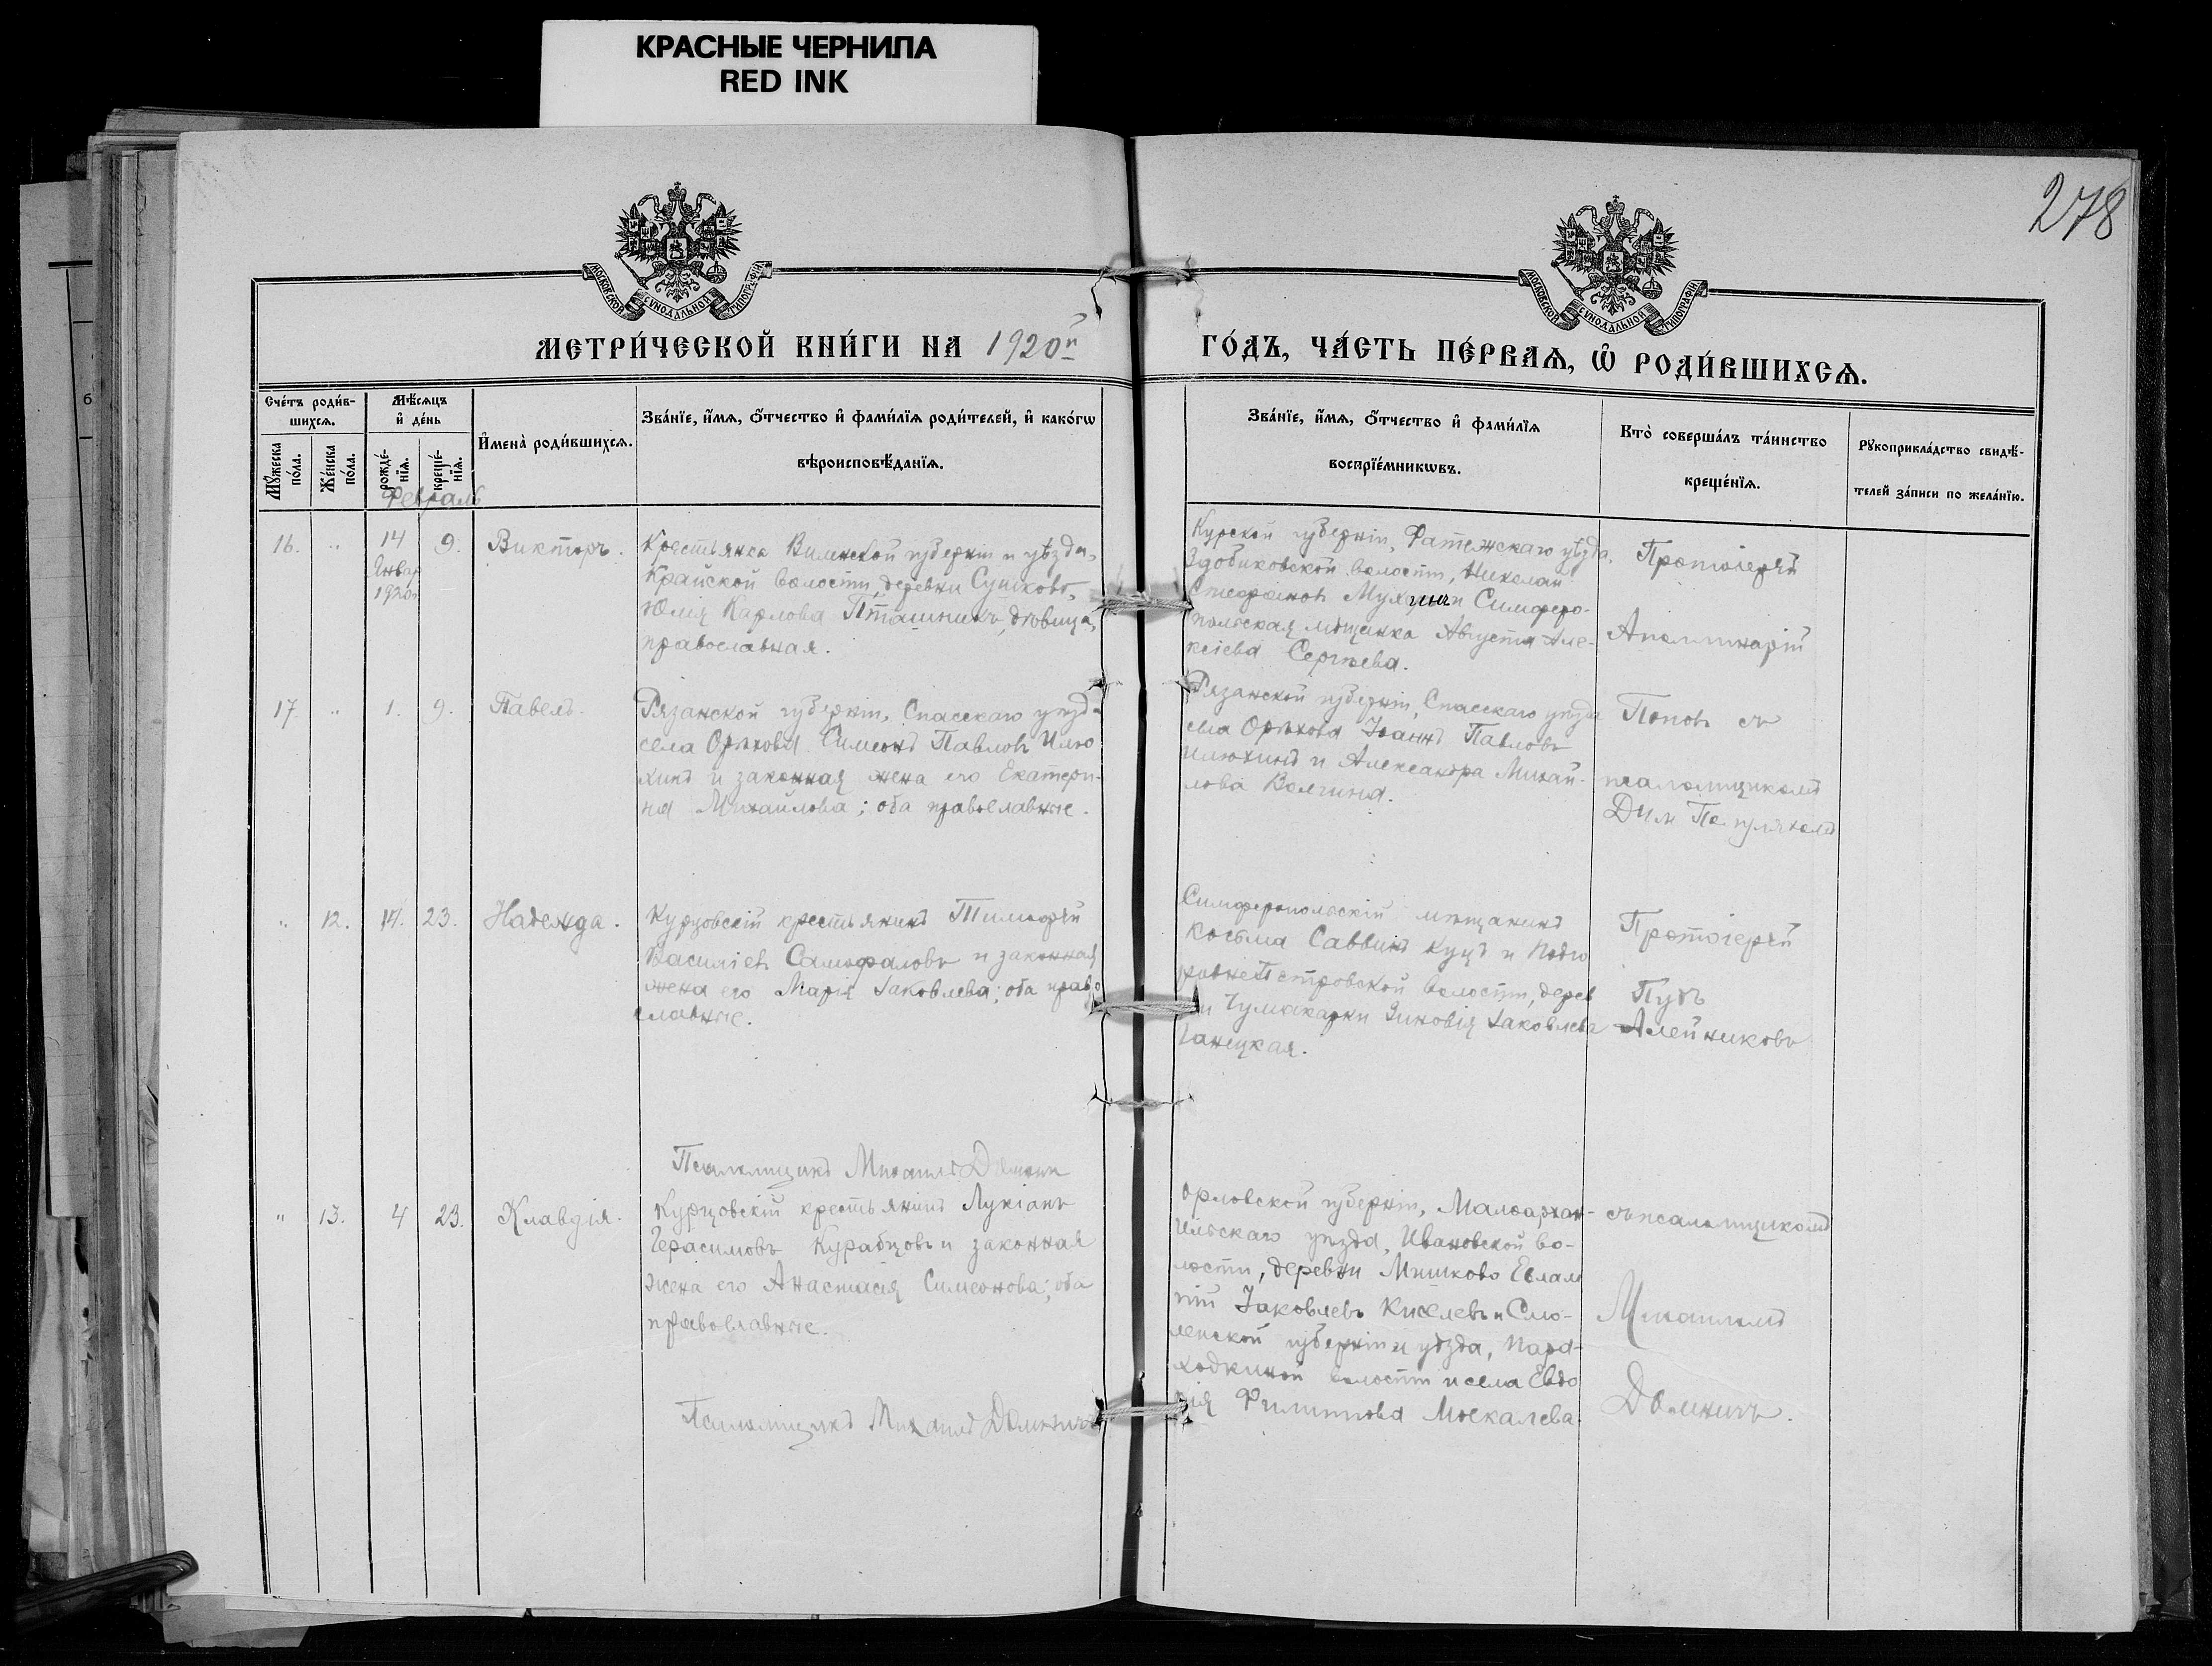 КРАСНЫЕ ЧЕРНИЛА
RED INK
278
МОСКОВСКОЙ СѴНОДАЛЬНОЙ ТИПОГРАФІИ
МОСКОВСКОЙ СѴНОДАЛЬНОЙ ТИПОГРАФІИ
МЕТРИ́ЧЕСКОЙ КНИ́ГИ НА 1920й
ГО́ДЪ, ЧА́СТЬ ПЕ́РВАѦ, Ѿ РОДИ́ВШИХСѦ.
Сче́тъ роди́в-
шихсѧ.
Мꙋ́жеска
по́ла.
Же́нска
по́ла.
Мѣ́сѧцъ
и҆ де́нь
рожде́-
нїѧ.
креще́-
нїѧ.
И҆мена̀ роди́вшихсѧ.
Зва́нїе, и҆́мѧ, ѻ҆́тчество и҆ фами́лїѧ роди́телей, и҆ како́гѡ
вѣроисповѣ́данїѧ.
Зва́нїе, и҆́мѧ, ѻ҆́тчество и҆ фами́лїѧ
воспрїе́мникѡвъ.
Кто̀ соверша́лъ та́инство
креще́нїѧ.
Рꙋкоприкла́дство свидѣ́-
телей за́писи по жела́нїю.
Февраль
16.
"
14
Январ
1920г
9.
Викторъ.
Крестьянка Виленской губерніи и уѣзда,
Крайской волости, деревни Сушково,
Юлія Карлова Пташникъ, дѣвица,
православная.
Курской губерніи, Фатежскаго уѣзда,
волости, Николай
Стефановъ Мухинъ и Симферо-
польская мѣщанка Августа Але-
ксіева Сергѣева.
Протоіерей
Аполлинарій
17
"
1.
9.
Павелъ.
Рязанской губерніи, Спасскаго уѣзда
села Орѣхова Симеонъ Павловъ Илю
хинъ и законная жена его Екатери-
на Михайлова; оба православные.
Рязанской губерніи, Спасскаго уѣзда
села Орѣхова Іоаннъ Павловъ
Илюхинъ и Александра Михай-
лова Волгина.
Поповъ съ
псаломщикомъ
Дим
"
12.
14.
23.
Надежда.
Курцовскій крестьянинъ Тимофей
Василіевъ Самофаловъ и законная
жена его Марія Іаковлева; оба право
славные.
Симферопольскій мѣщанинъ
Косьма Саввинъ Куцъ и Подго
роднеПетровской волости, дерев
ни Чумакары Зиновія Іаковлева
Ганецкая.
Протоіерей
Пудъ
Алейниковъ
Псаломщикъ Михаилъ
"
13.
4
23.
Клавдія.
Курцовскій крестьянинъ Лукіанъ
Герасимовъ Курабцовъ и законная
жена его Анастасія Симеонова; оба
православные.
Орловской губерніи, Малоархан-
гельскаго уѣзда, Ивановской во-
лости, деревни Мишково Евлам
пій Іаковлевъ Киселевъ и Смо-
ленской губерніи и уѣзда,
волости и села Евдо
кія Филиппова Москалева.
съ псаломщикомъ
Михаиломъ
Псаломщикъ Михаилъ